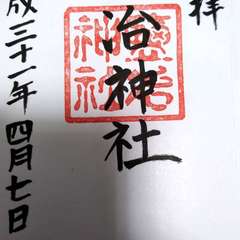 拝
治神社
神社
成三十一年四月七日